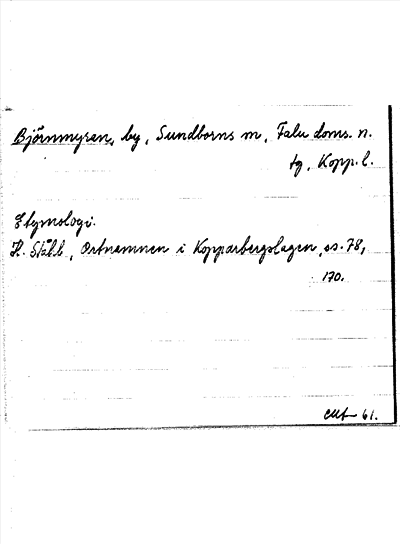 Björnmyren, by, Sundborns sn, Falu doms. n.
tg, Kopp. l.
Etymologi:
H. Ståhl, Ortnamnen i Kopparbergslagen, ss. 78,
170.
61.